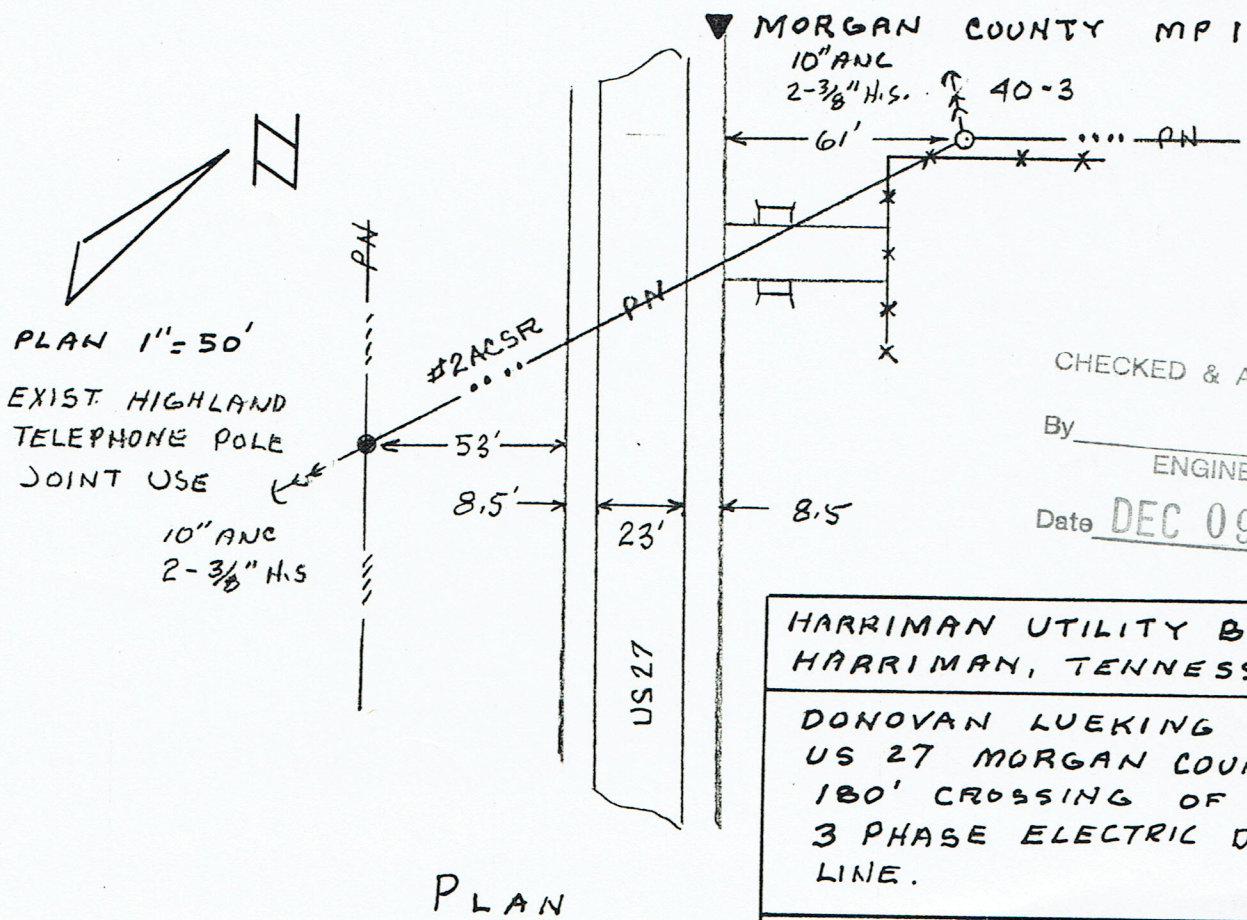 MORGAN COUNTY MP 1
10" ANC
2-3/8" H.S.
40-3
61'
PN
N
PN
PLAN 1"=50'
#2ACSR
PN
EXIST. HIGHLAND
TELEPHONE POLE
JOINT USE
53'
8.5'
23'
8.5
10" ANC
2-3/8" H.S
US 27
CHECKED & A
By
ENGINE
Date DEC 09
HARRIMAN UTILITY B
HARRIMAN, TENNESS
DONOVAN LUEKING
US 27 MORGAN COUN
180' CROSSING OF
3 PHASE ELECTRIC D
LINE.
PLAN